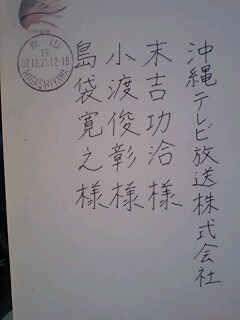 沖縄テレビ放送株式会社
末吉功治 様
小渡俊彰 様
島袋寛之 様
東山
07.10.21.12-18
HIGASHIYAMA